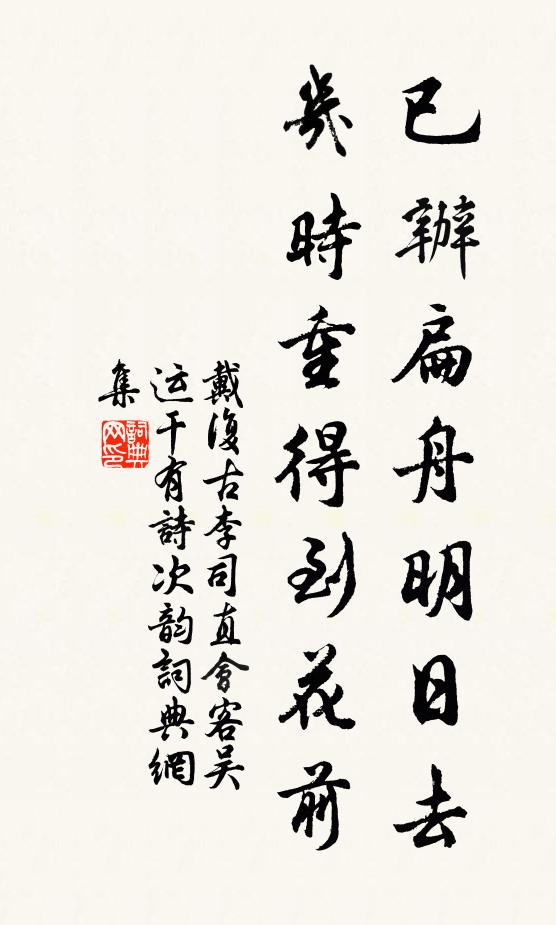 已辦扁舟明日去
幾時重得到花前
戴復古李司直會客吴
运干有詩次韵詞典網
集
詞典
网印